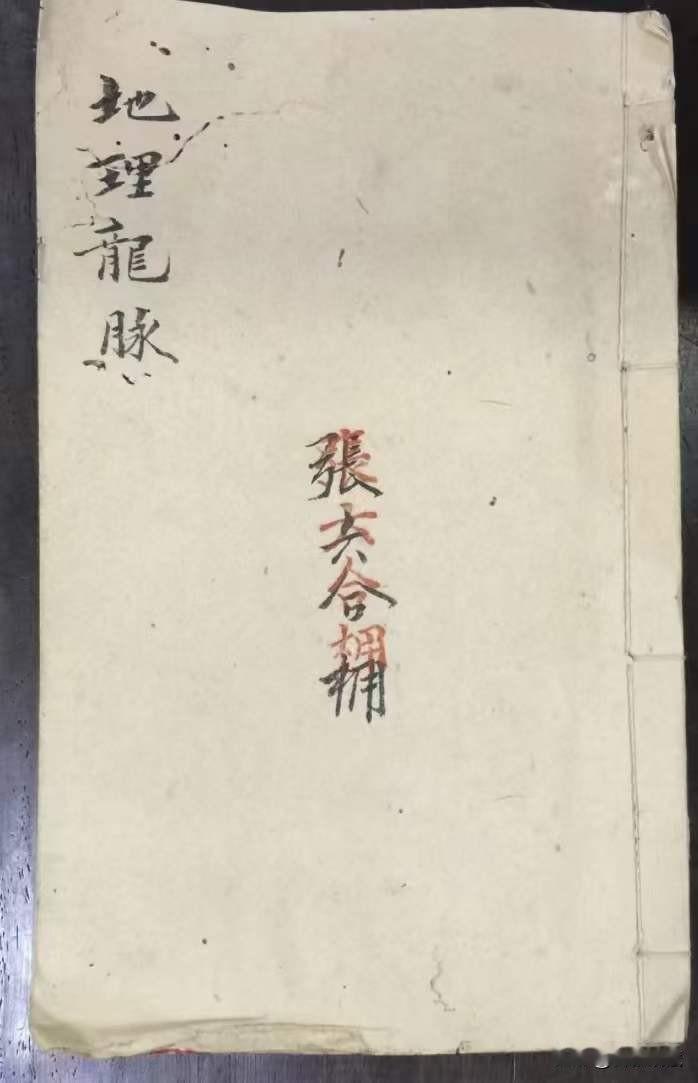 地理龍脉
張六合